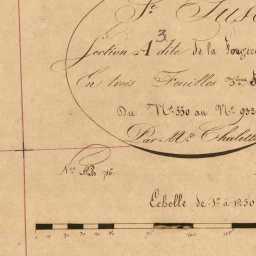 St. JUS
Section A 3 dite de la Fougere
En trois Feuilles 3eme
Du No. 550 au No. 933
Par Mr. Chalette
Echelle de 1 à 1250